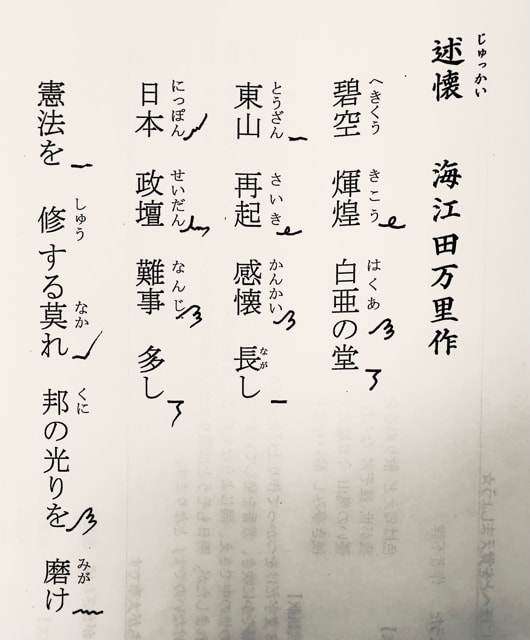 述懐 海江田万里作
じゅっかい
碧空 煇煌 白亜の堂
へきくう きこう はくあ
東山 再起 感懐 長し
とうざん さいき かんかい なが
日本 政壇 難事 多し
にっぽん せいだん なんじ
憲法を 修する莫れ 邦の光りを 磨け
しゅう なか くに みが